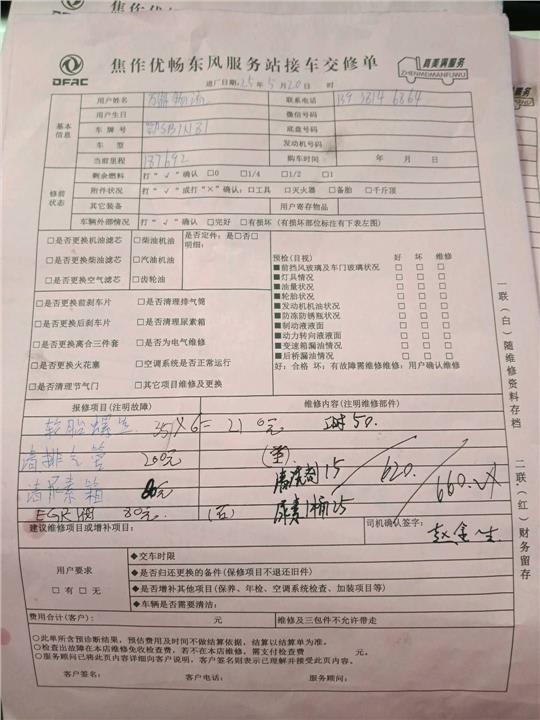 DFAC
焦作优畅东风服务站接车交修单
真美满服务
ZHENMEIMANFUWU
进厂日期:25年5月20日 时
基本信息
用户姓名 联系电话
用户生日 微信号码
车牌号 底盘号码
车型 发动机号码
当前里程 137692 购车时间 年 月 日
修前状态
剩余燃料 打“√”确认 □0 □1/4 □1/2 □1
附件状况 打“√”或打“×”确认:□工具 □灭火器 □备胎 □千斤顶
其它装备 用户寄存物品
车辆外部情况 打“√”确认 □完好 □有损坏(有损坏部位标注有下表左图)
□是否更换机油滤芯 □柴油机油 是否定件:是□否□
明细:
□是否更换柴油滤芯 □汽油机油
□是否更换空气滤芯 □齿轮油
□是否更换前刹车片 □是否清理排气筒
□是否更换后刹车片 □是否清理尿素箱
□是否更换离合三件套 □是否为电气维修
□是否更换火花塞 □空调系统是否正常运行
□是否清理节气门 □其它项目维修及更换
预检(目视) 好 坏 维修
■前挡风玻璃及车门玻璃状况 □ □ □
■灯具情况 □ □ □
■油量状况 □ □ □
■轮胎状况 □ □ □
■发动机机油状况 □ □ □
■防冻防锈瓶状况 □ □ □
■制动液液面 □ □ □
■动力转向液液面 □ □ □
■变速箱漏油情况 □ □ □
■后桥漏油情况 □ □ □
好:合格 坏:有故障需维修维修:用户确认维修
报修项目(注明故障) 维修内容(注明维修部件)
35/×6=210元 50.
清排气管 200元
15 620.
清尿素箱 660.
EGR阀 80元. 25
建议维修项目或增补项目: 司机确认签字:
用户要求
□有 □无
◆交车时限
◆是否归还更换的备件(保修项目不退还旧件)
◆是否增补其他项目(保养、年检、空调系统检查、加装项目等)
◆车辆是否需要清洁:
费用合计(客户): 元 维修及三包件不允许带走
○此单所含预诊断结果,预估费用及时间不做结算依据,结算以结算单为准。
○检查出故障在本店维修免收检查费,若不在本店维修,需支付检查费 元。
○服务顾问已将此页内容详细向客户说明,客户签名则表示已理解并接受此页内容。
客户签名: 客户电话: 服务顾问:
一联(白)随维修资料存档
二联(红)财务留存